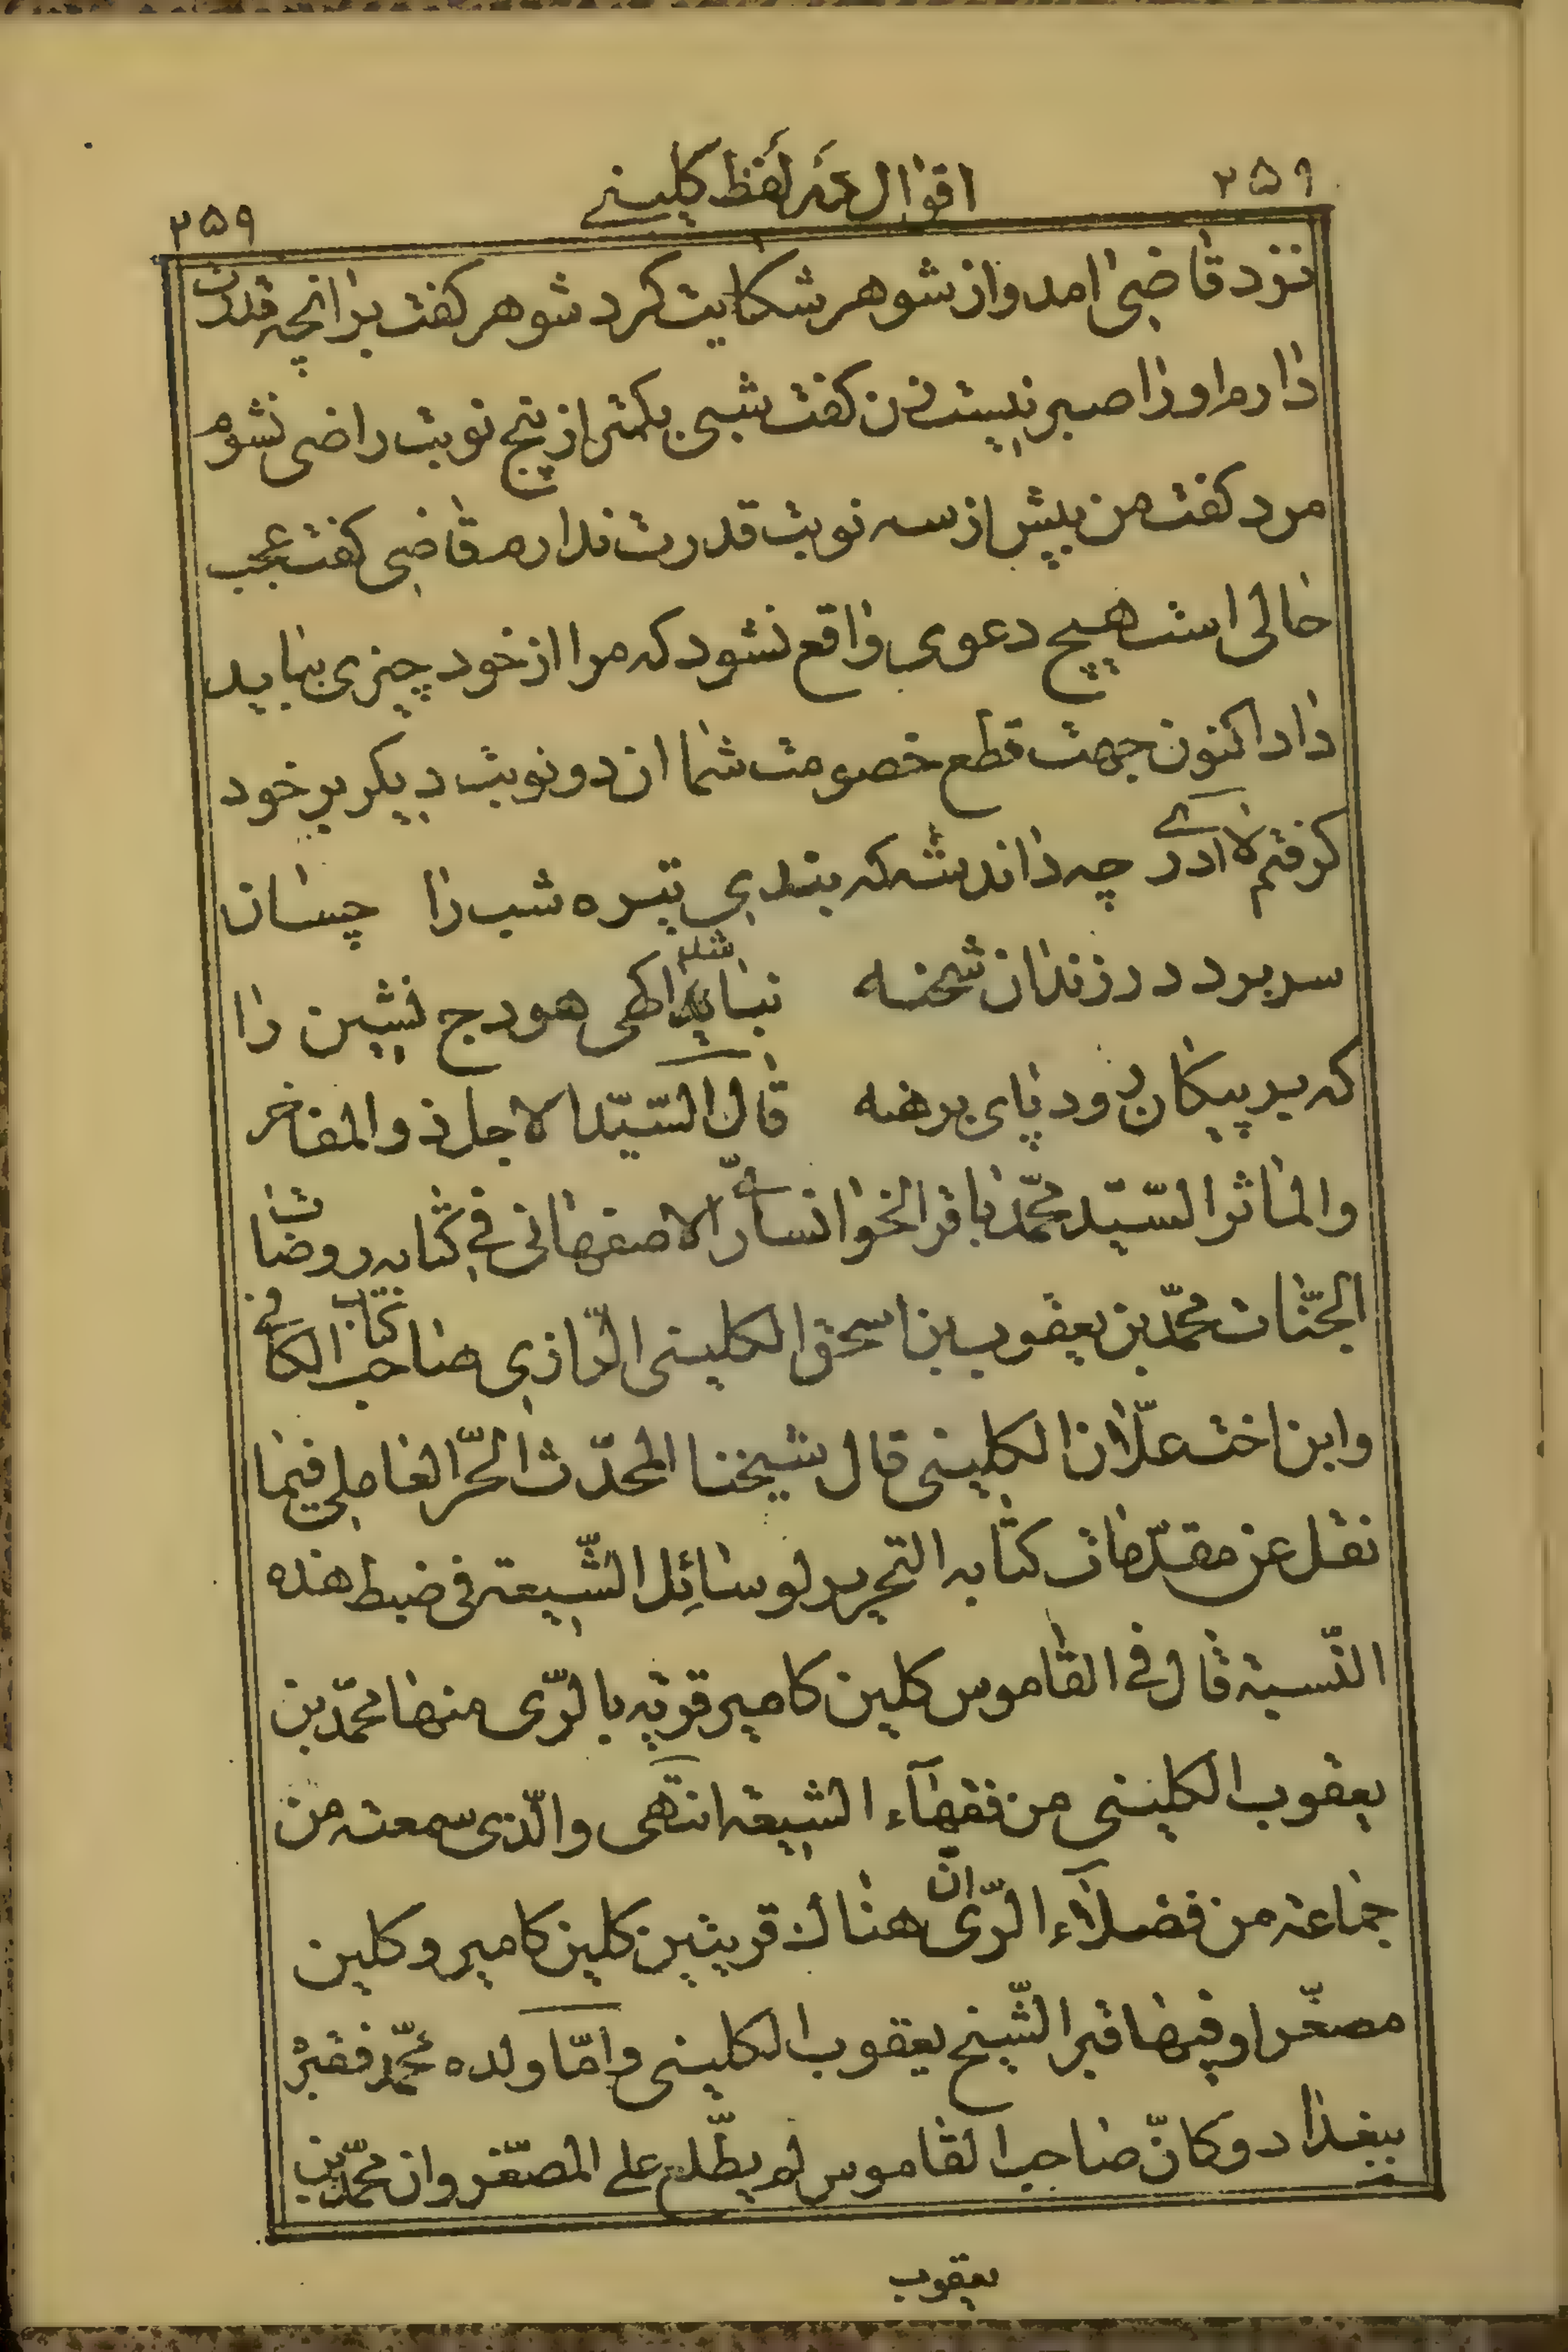 ۲۵۹
اقوال در لفظ کلینی
۲۵۹
نزد قاضی امد و از شوهر شکایت کرد شوهر کفت برانچه قدرت
دارم او را صبر نیست زن کفت شبی بکمتر از پنج نوبت راضی نشوم
مرد کفت من بیش از سه نوبت قدرت ندارم قاضی کفت عجب
حالی است هیچ دعوی واقع نشود که مرا از خود چیزی نباید
داد اکنون جهت قطع خصومت شما ان دو نوبت دیکر بر خود
کرفتم لاادری چه داند شه که بندی تیره شب را چسان
سر برد در زندان شحنه نباشد اکهی هودج نشین را
که بر پیکان دود پای برهنه قال السّیّد الاجل ذو المفاخر
والماثر السّیّد محمّد باقر الخوانساریّ الاصفهانی فی کتابه روضات
الجنّات محمّد بن یعقوب بن اسحق الکلینی الرّازی صاحب کتاب الکافی
وابن اخت علّان الکلینی قال شیخنا المحدّث الحرّ العاملی فیما
نقل عن مقدّمات کتابه التحریر لوسائل الشّیعة فی ضبط هذه
النّسبة قال فی القاموس کلین کامیر قریه بالرّی منها محمّد بن
یعقوب الکلینی من فقهآء الشیعة انتهی والّذی سمعته من
جماعة من فضلآء الرّی انّ هناک قریتین کلین کامیر و کلین
مصغّرا وفیها قبر الشّیخ یعقوب الکلینی وامّا ولده محمّد فقبره
ببغداد وکانّ صاحب القاموس لم یطّلع علی المصغّر وان محمّد بن
یعقوب